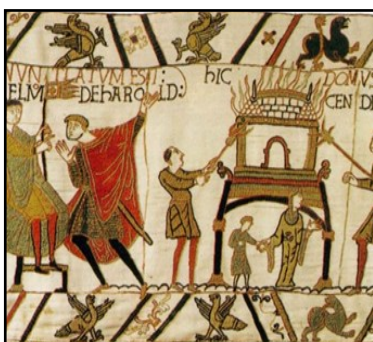 NUNTIATUM EST: hIC DOMVS
ELM DEhAROLD: CEN